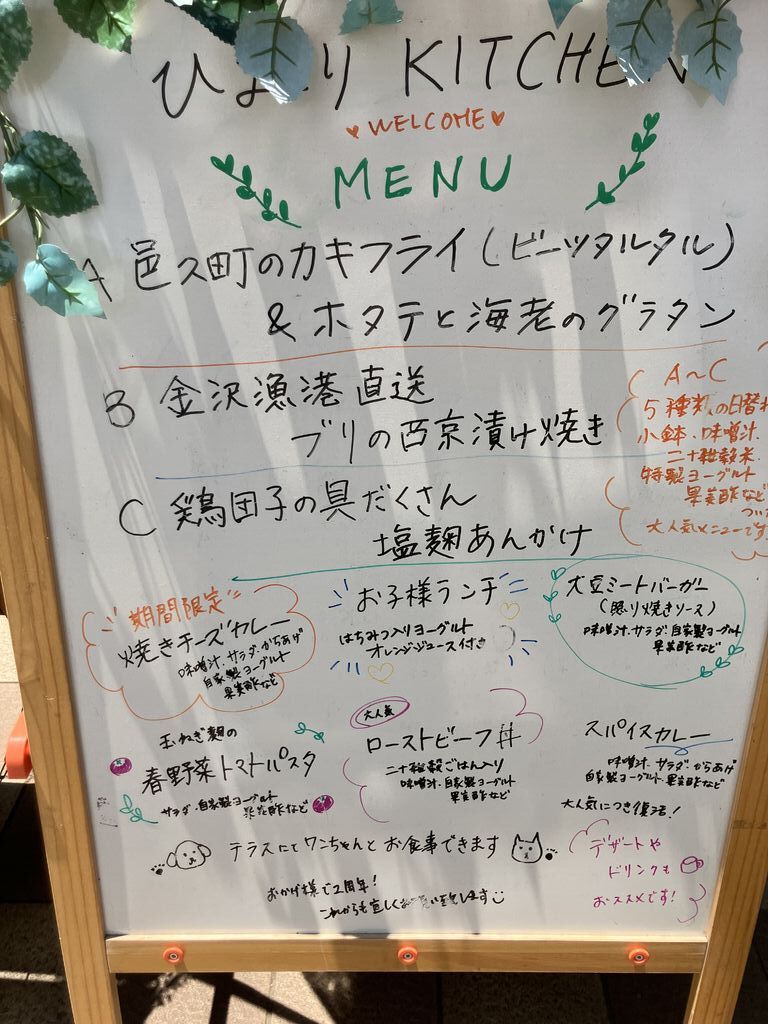 KITCHEN
WELCOME
MENU
A 邑久町のカキフライ(ビーツタルタル)
&ホタテと海老のグラタン
B 金沢漁港直送
ブリの西京漬け焼き
C 鶏団子の具だくさん
塩麹あんかけ
A～C
5種類の日替わ
小鉢・味噌汁・
二十雑穀米・
特製ヨーグルト
果実酢など
ついた
大人気メニューです
期間限定
焼きチーズカレー
味噌汁・サラダ・からあげ
自家製ヨーグルト
果実酢など
お子様ランチ
はちみつ入りヨーグルト
オレンジジュース付き
大豆ミートバーガー
(照り焼きソース)
味噌汁・サラダ・自家製ヨーグルト
果実酢など
玉ねぎ麹の
春野菜トマトパスタ
サラダ・自家製ヨーグルト
果実酢など
大人気
ローストビーフ丼
二十雑穀ごはん入り
味噌汁・自家製ヨーグルト
果実酢など
スパイスカレー
味噌汁・サラダ・からあげ
自家製ヨーグルト・果実酢など
大人気につき復活!
テラスにてワンちゃんとお食事できます
おかげ様で2周年!
これからも宜しくお願い致します
デザートや
ドリンクも
おススメです!